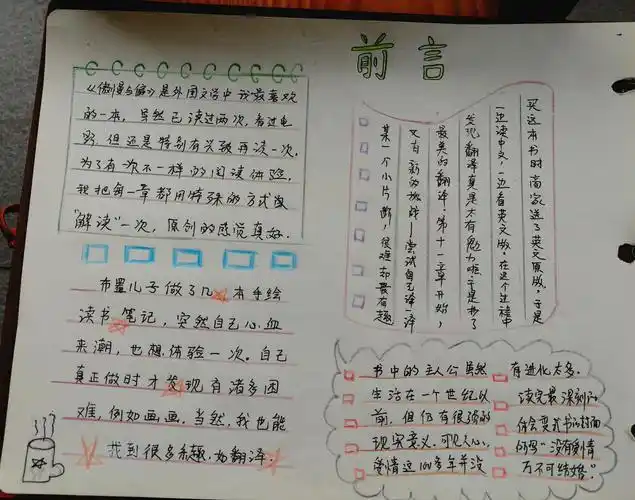 前言
《傲慢与偏》是外国文学中我最喜欢
的一本，虽然已读过两次，看过电
影，但还是特别有兴致再读一次，
为了有次不一样的阅读体验，
我把每一章都用特殊的方式
"解读"一次，原创的感觉真好。
布置儿子做了几本手绘
读书笔记，突然自己心血
来潮，也想体验一次。自己
真正做时才发现有诸多困
难，例如画画，当然，我也能
找到很多乐趣，如翻译。
买这本书时商家送了英文原版，于是
一边读中文，一边看英文版，在这个过程中
发现翻译真是太有魅力啦，于是抄了
最美的翻译。第十一章开始，
又有新的挑战——尝试自己译一译
某一个小片断，很难却最有趣
书中的主人公虽然
生活在一个世纪以
前，但仍有很强的
现实意义，可见人心、
爱情这100多年并没
有进化太多。
读完最深刻的
何写"没有爱情
万不可结婚"。